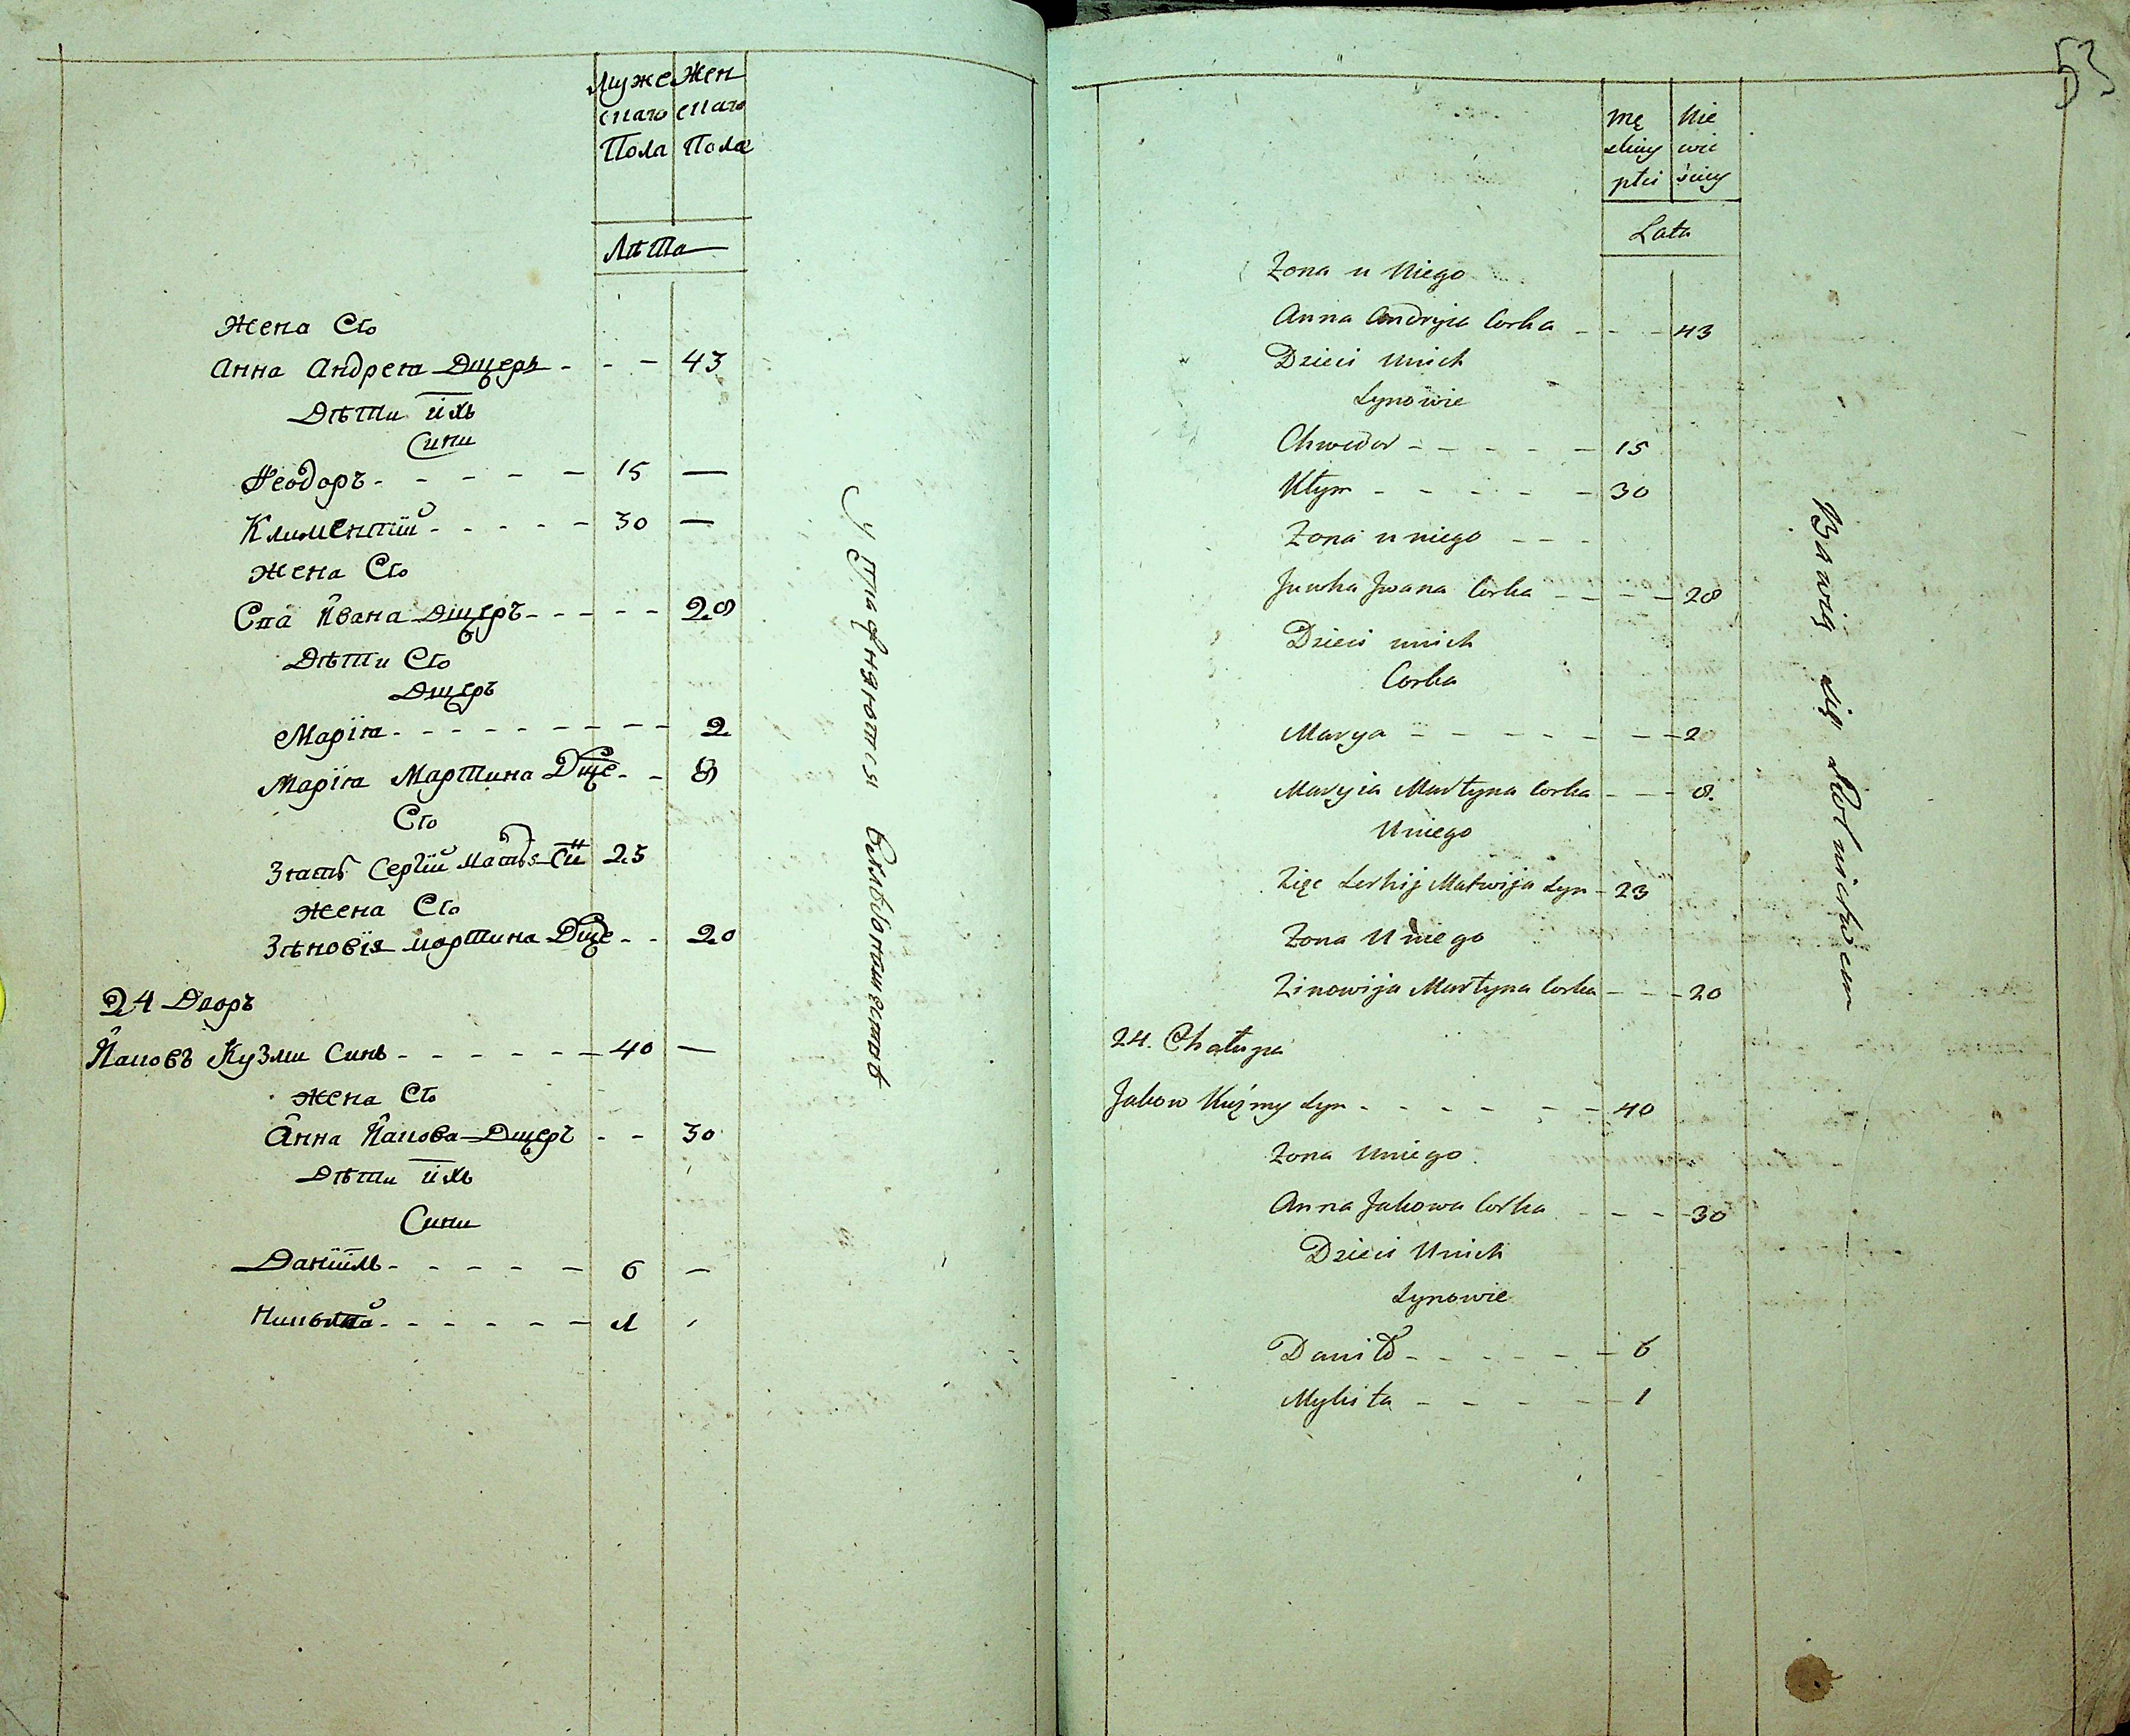 Муже Жен
скаго скаго
Пола Пола
Лѣта
Жена Его
Анна Андрея Дщерь - - - 43
Дѣти ихъ
Сини
Ѳеодоръ - - - - - 15 —
Климентій - - - - - 30 —
Жена Его
Івана Дщеръ - - - - - 28
Дѣти Его
Дщеръ
Марія - - - - - - - - 2
Марія Мартина Дще - - 8
Его
Зять Сергій 23
Жена Его
Зѣновія мартина Дще - - 20
24 Дворъ
Яковъ Кузми Синъ - - - - - - 40 —
Жена Его
Анна Якова Дщеръ - - 30
Дѣти ихъ
Сини
Даніилъ - - - - - 6 —
Никита - - - - - - 1
53
Mę Nie
skiey wie
płciściey
Lata
Zona u Niego
Anna Andryia Corka - - - 43
Dzieci unich
Synowie
Chwedor - - - - - 15
Kłym - - - - - 30
Zona u niego - - -
Iwana Corka - - - - 28
Dzieci unich
Corka
Marya - - - - - - - 2
Maryia Martyna Corka - - - 8.
Uniego
Zięc Serhij Matwija Syn - 23
Zona Uniego
Zinowija Martyna Corka - - - 20
24. Chałupa
Jakow Kuźmy Syn - - - - - - 40
Zona Uniego
Anna Jakowa Corka - - - - 30
Dzieci Unich
Synowie
Daniło - - - - - - 6
Mykita - - - - - 1
Bawią się Rolnictwem